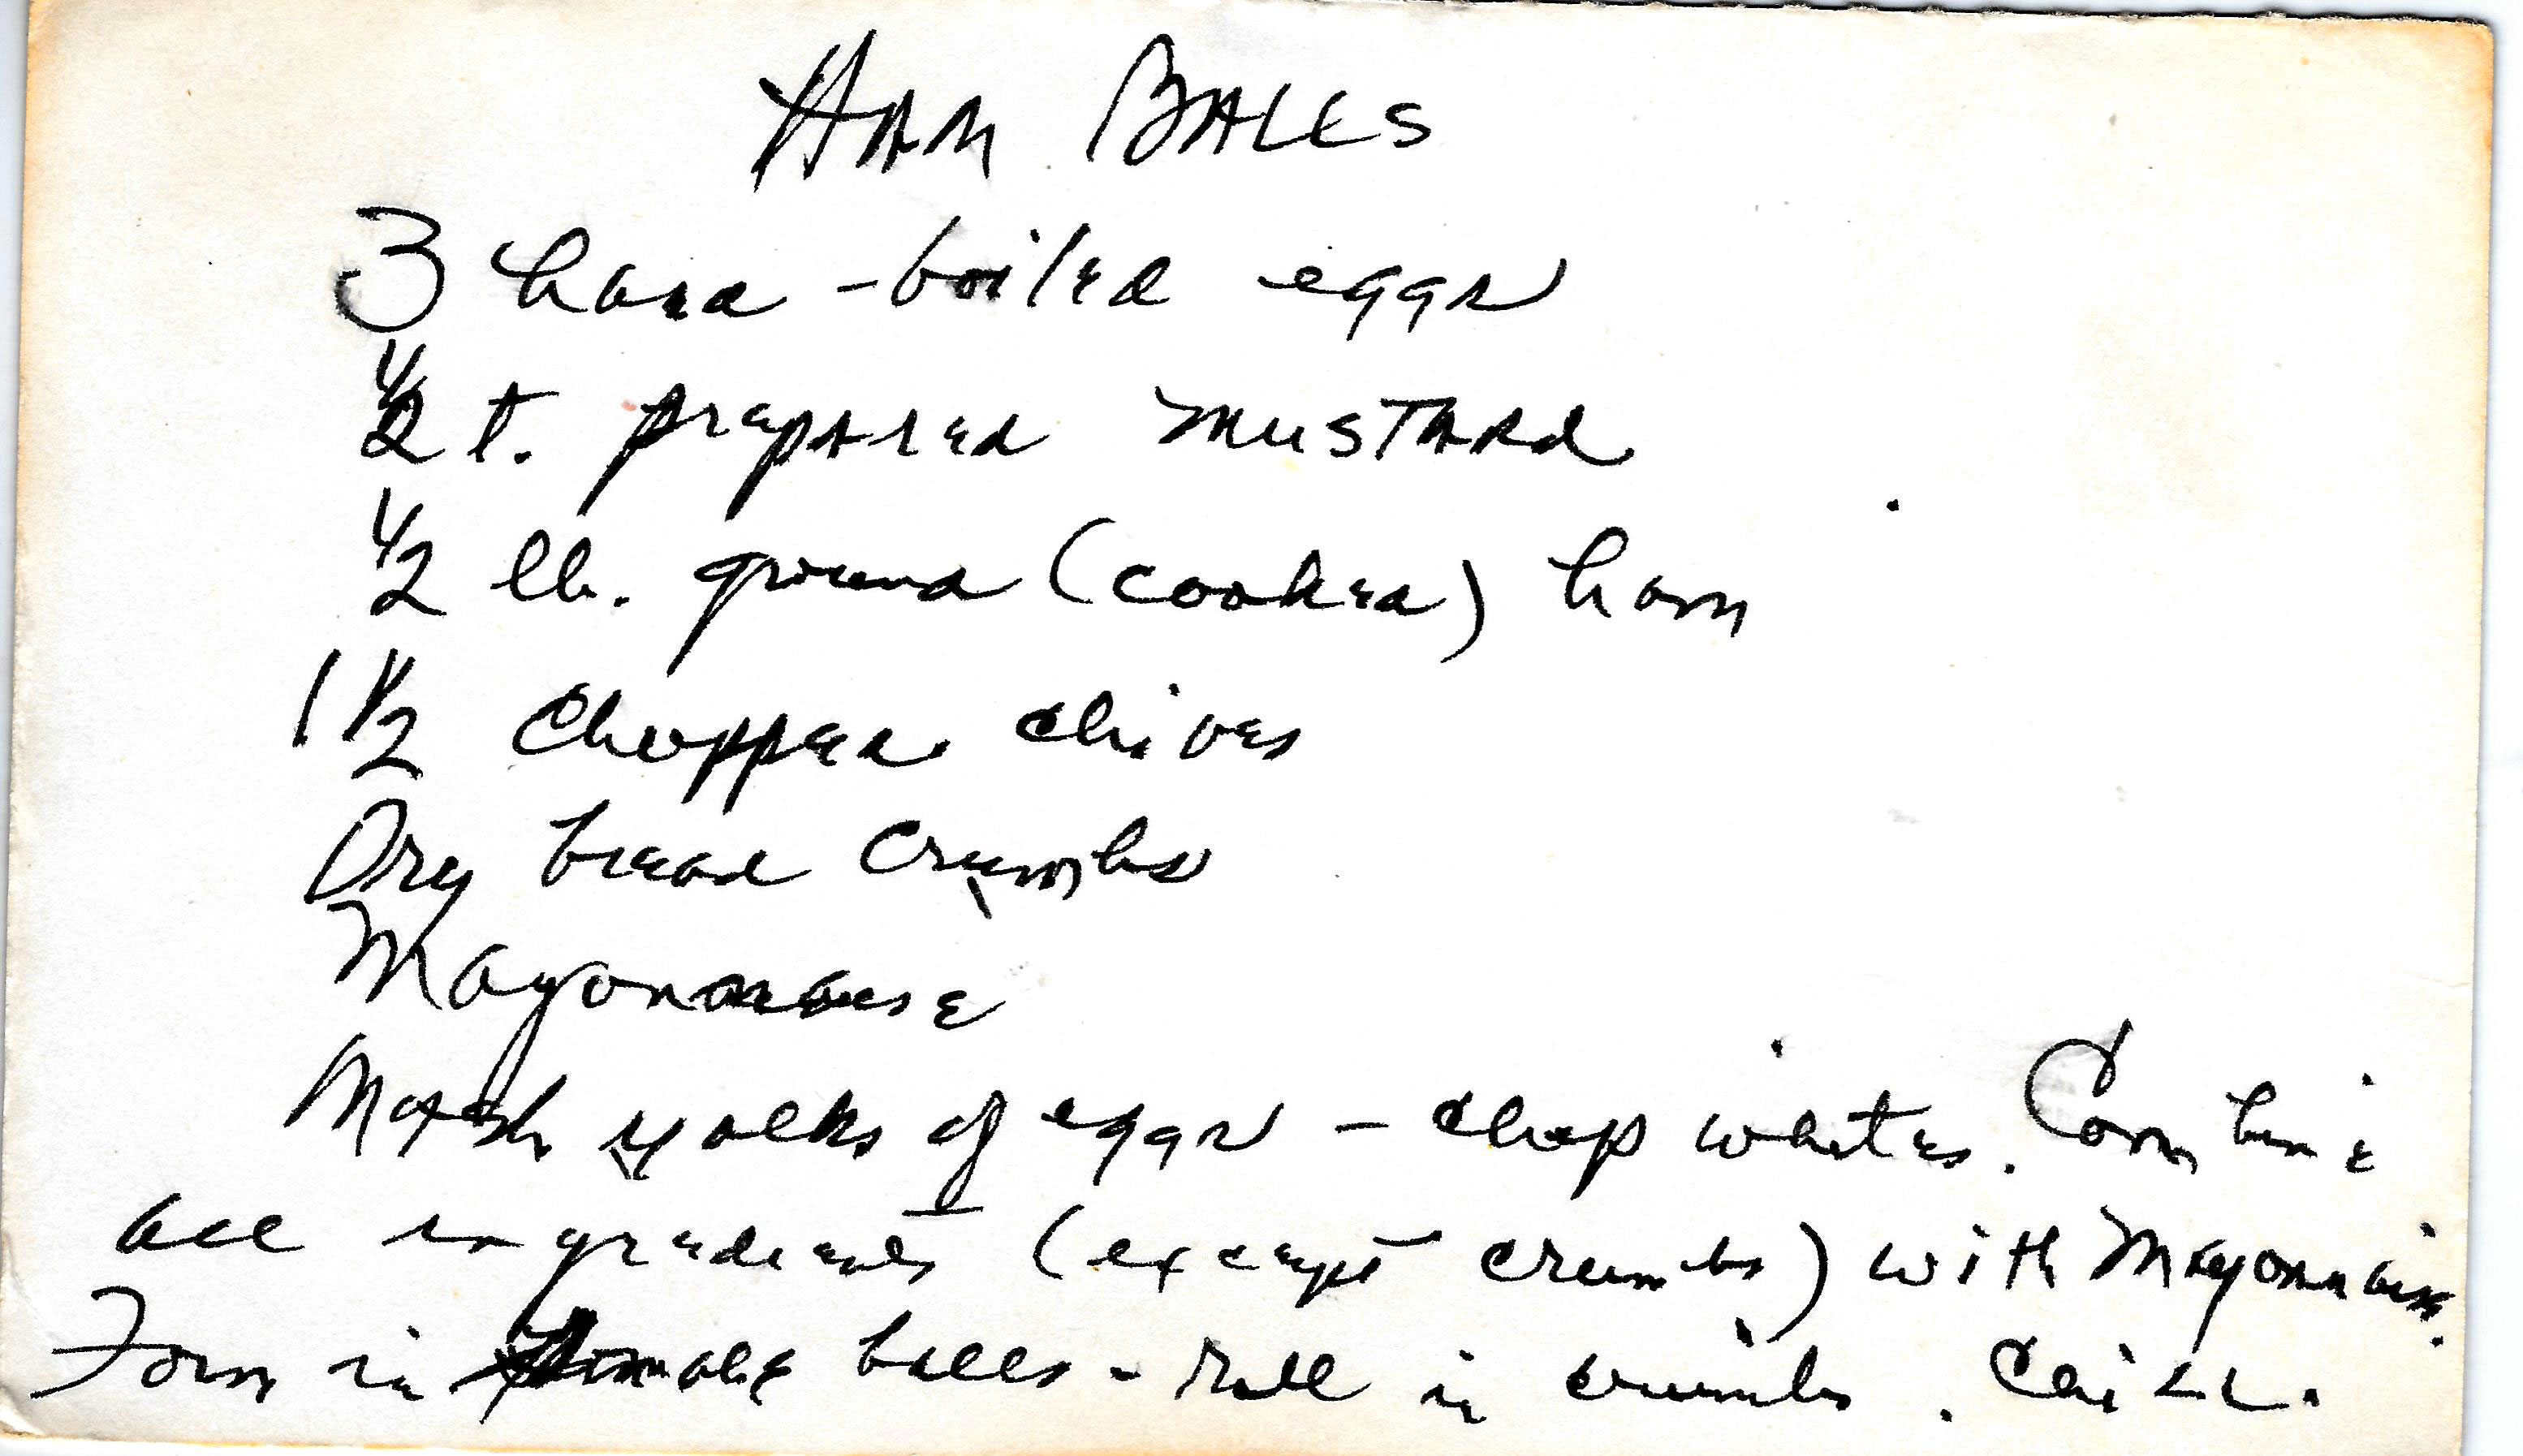 HAM BALLS
3 hard-boiled eggs
1/2 t. prepared mustard
1/2 lb. ground (cooked) ham
1 1/2 chopped chives
Dry bread crumbs
Mayonnaise
Mash yolks of eggs - chop whites. Combine
all ingredients (except crumbs) with Mayonnaise.
Form in small balls - Roll in crumbs. Chill.